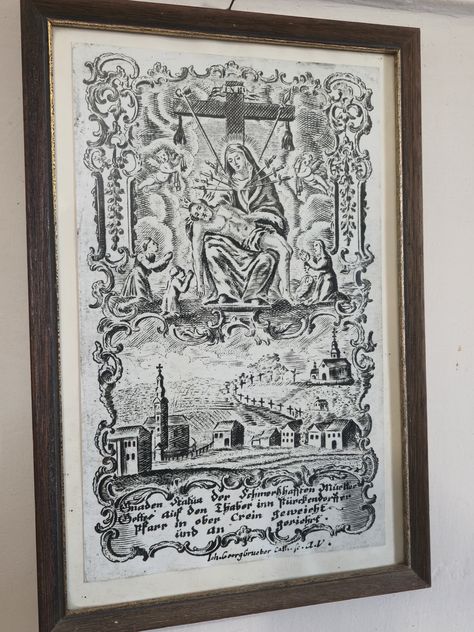 Gnaden Statua der Schmerthafften Muetter
Gottes auf den Thaber inn Pürckendorffer
Pfarr in ober Crein geweicht
und an gerichtet.